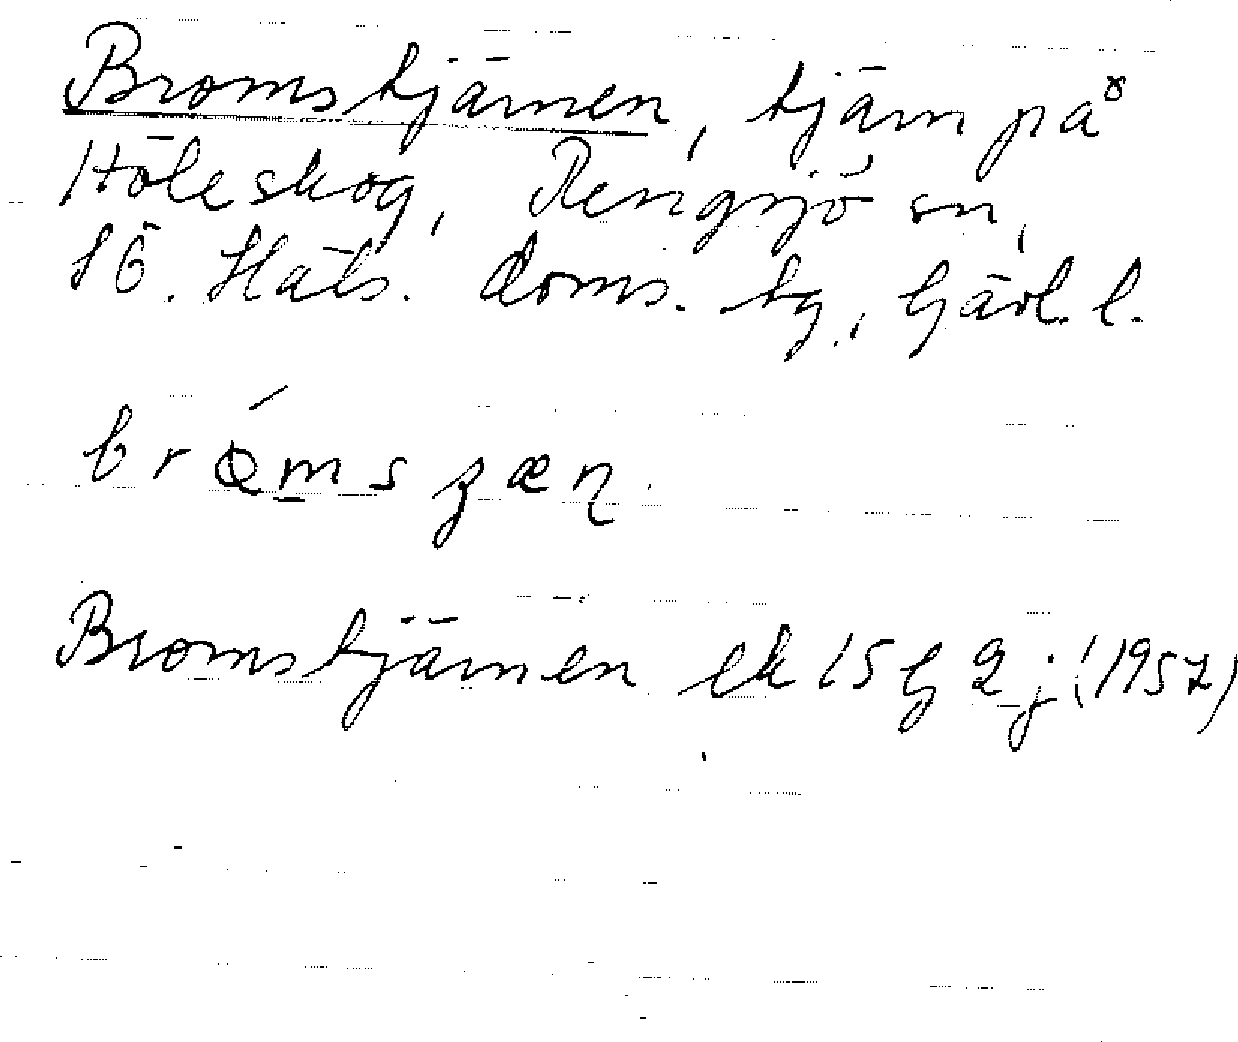 Bromstjärnen, tjärn på
Höleskog, Rengsjö sn,
SÖ. Häls. doms. tg, Gävl. l.
Bromstjärnen ek 15 G 2 j (1957)